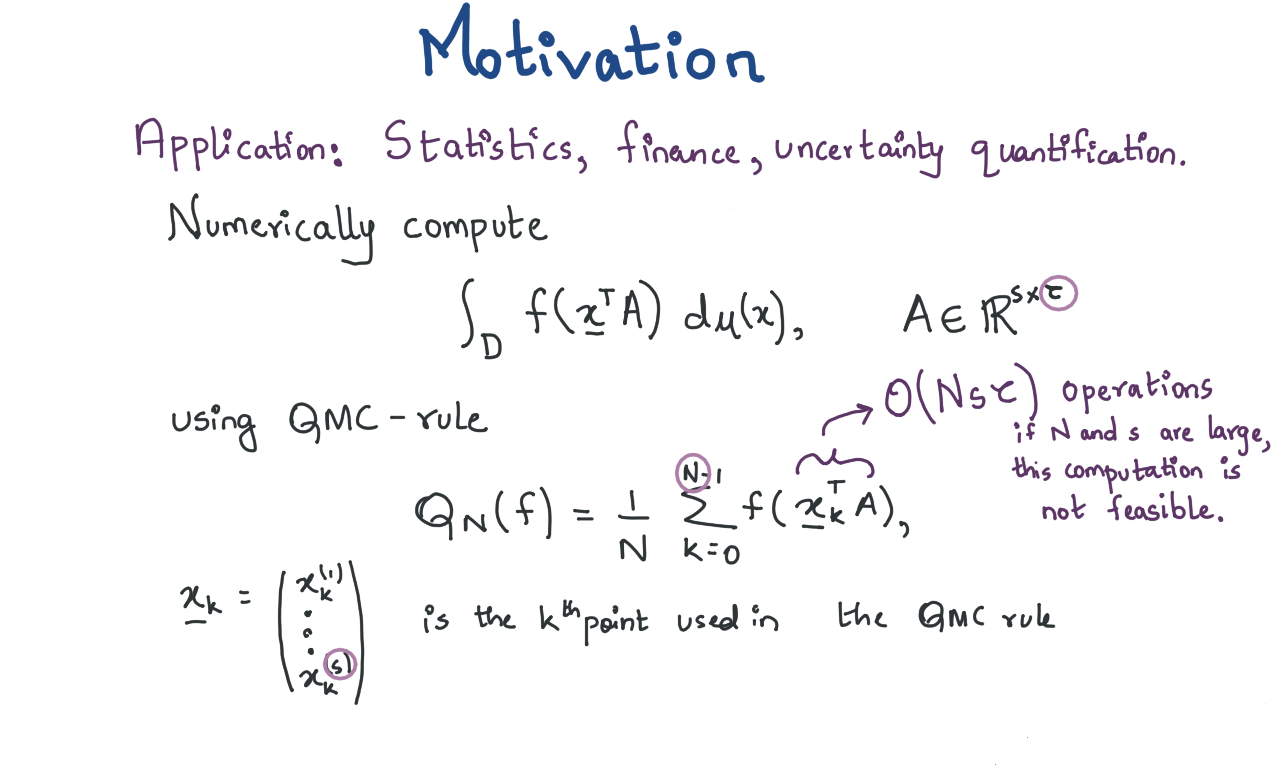 Motivation
Application: Statistics, finance, uncertainty quantification.
Numerically compute
∫_D f(x̲ᵀA) dμ(x), A ∈ ℝ^{s×τ}
using QMC-rule
O(Nsτ) operations
if N and s are large,
this computation is
not feasible.
Q_N(f) = 1/N ∑_{k=0}^{N-1} f(x̲_kᵀA),
x̲_k = (x_k^{(1)} ⋮ x_k^{(s)}) is the kᵗʰ point used in the QMC rule